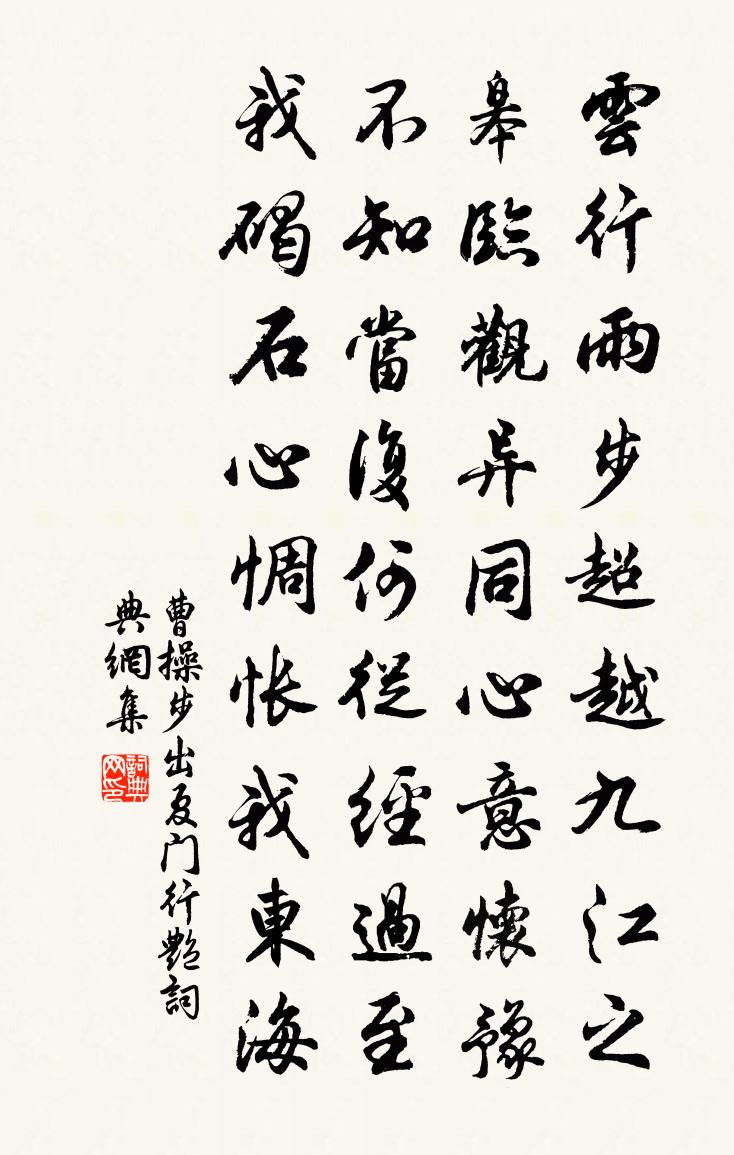 雲行雨步超越九江之
皋臨觀异同心意懷豫
不知當復何從經過至
我碣石心惆悵我東海
曹操步出夏门行艷詞
典網集
詞典网印